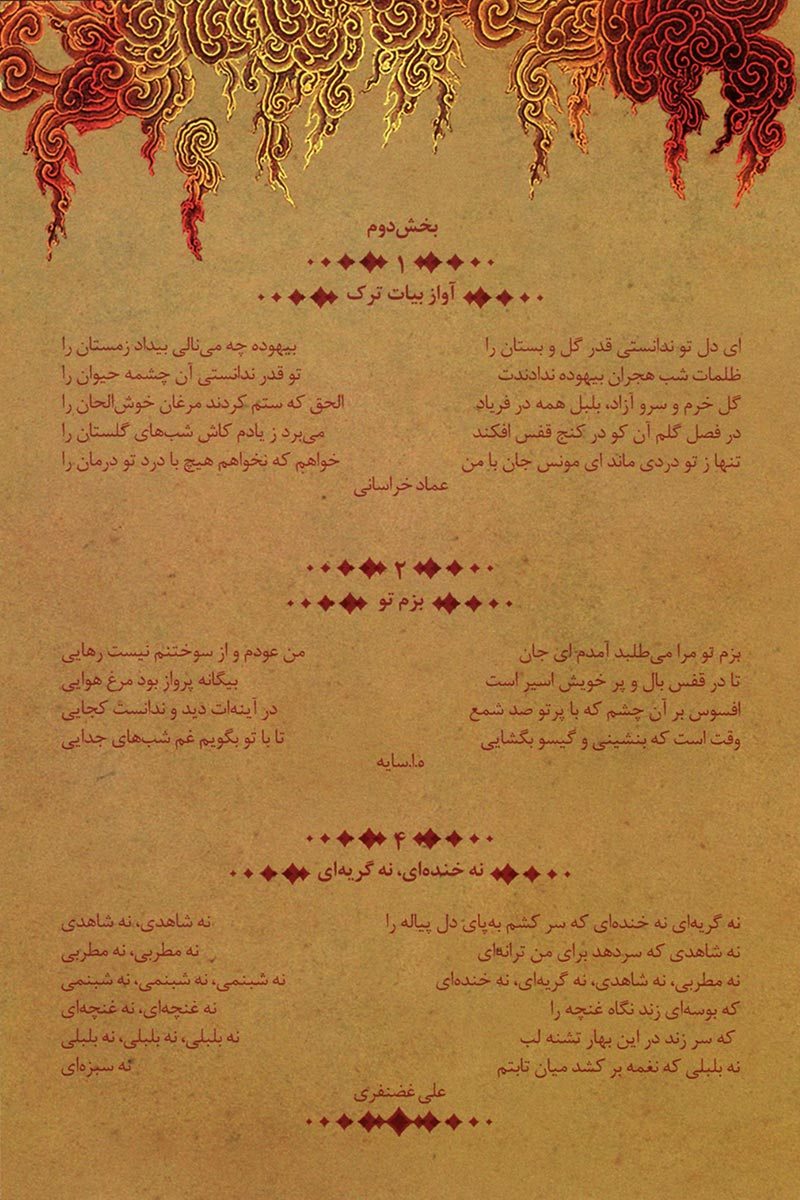 بخش‌دوم
۱
آواز بیات ترک
ای دل تو ندانستی قدر گل و بستان را بیهوده چه می‌نالی بیداد زمستان را
ظلمات شب هجران بیهوده ندادندت تو قدر ندانستی آن چشمه حیوان را
گل خرم و سرو آزاد، بلبل همه در فریاد الحق که ستم کردند مرغان خوش‌الحان را
در فصل گلم آن کو در کنج قفس افکند می‌برد ز یادم کاش شب‌های گلستان را
تنها ز تو دردی ماند ای مونس جان با من خواهم که نخواهم هیچ با درد تو درمان را
عماد خراسانی
۲
بزم تو
بزم تو مرا می‌طلبد آمدم ای جان من عودم و از سوختنم نیست رهایی
تا در قفس بال و پر خویش اسیر است بیگانه پرواز بود مرغ هوایی
افسوس بر آن چشم که با پرتو صد شمع در آینه‌ات دید و ندانست کجایی
وقت است که بنشینی و گیسو بگشایی تا با تو بگویم غم شب‌های جدایی
ه.ا.سایه
۴
نه خنده‌ای، نه گریه‌ای
نه گریه‌ای نه خنده‌ای که سر کشم به‌پای دل پیاله را نه شاهدی، نه شاهدی
نه شاهدی که سردهد برای من ترانه‌ای نه مطربی، نه مطربی
نه مطربی، نه شاهدی، نه گریه‌ای، نه خنده‌ای نه شبنمی، نه شبنمی، نه شبنمی
که بوسه‌ای زند نگاه غنچه را نه غنچه‌ای، نه غنچه‌ای
که سر زند در این بهار تشنه لب نه بلبلی، نه بلبلی، نه بلبلی
نه بلبلی که نغمه بر کشد میان تابتم نه سبزه‌ای
علی غضنفری